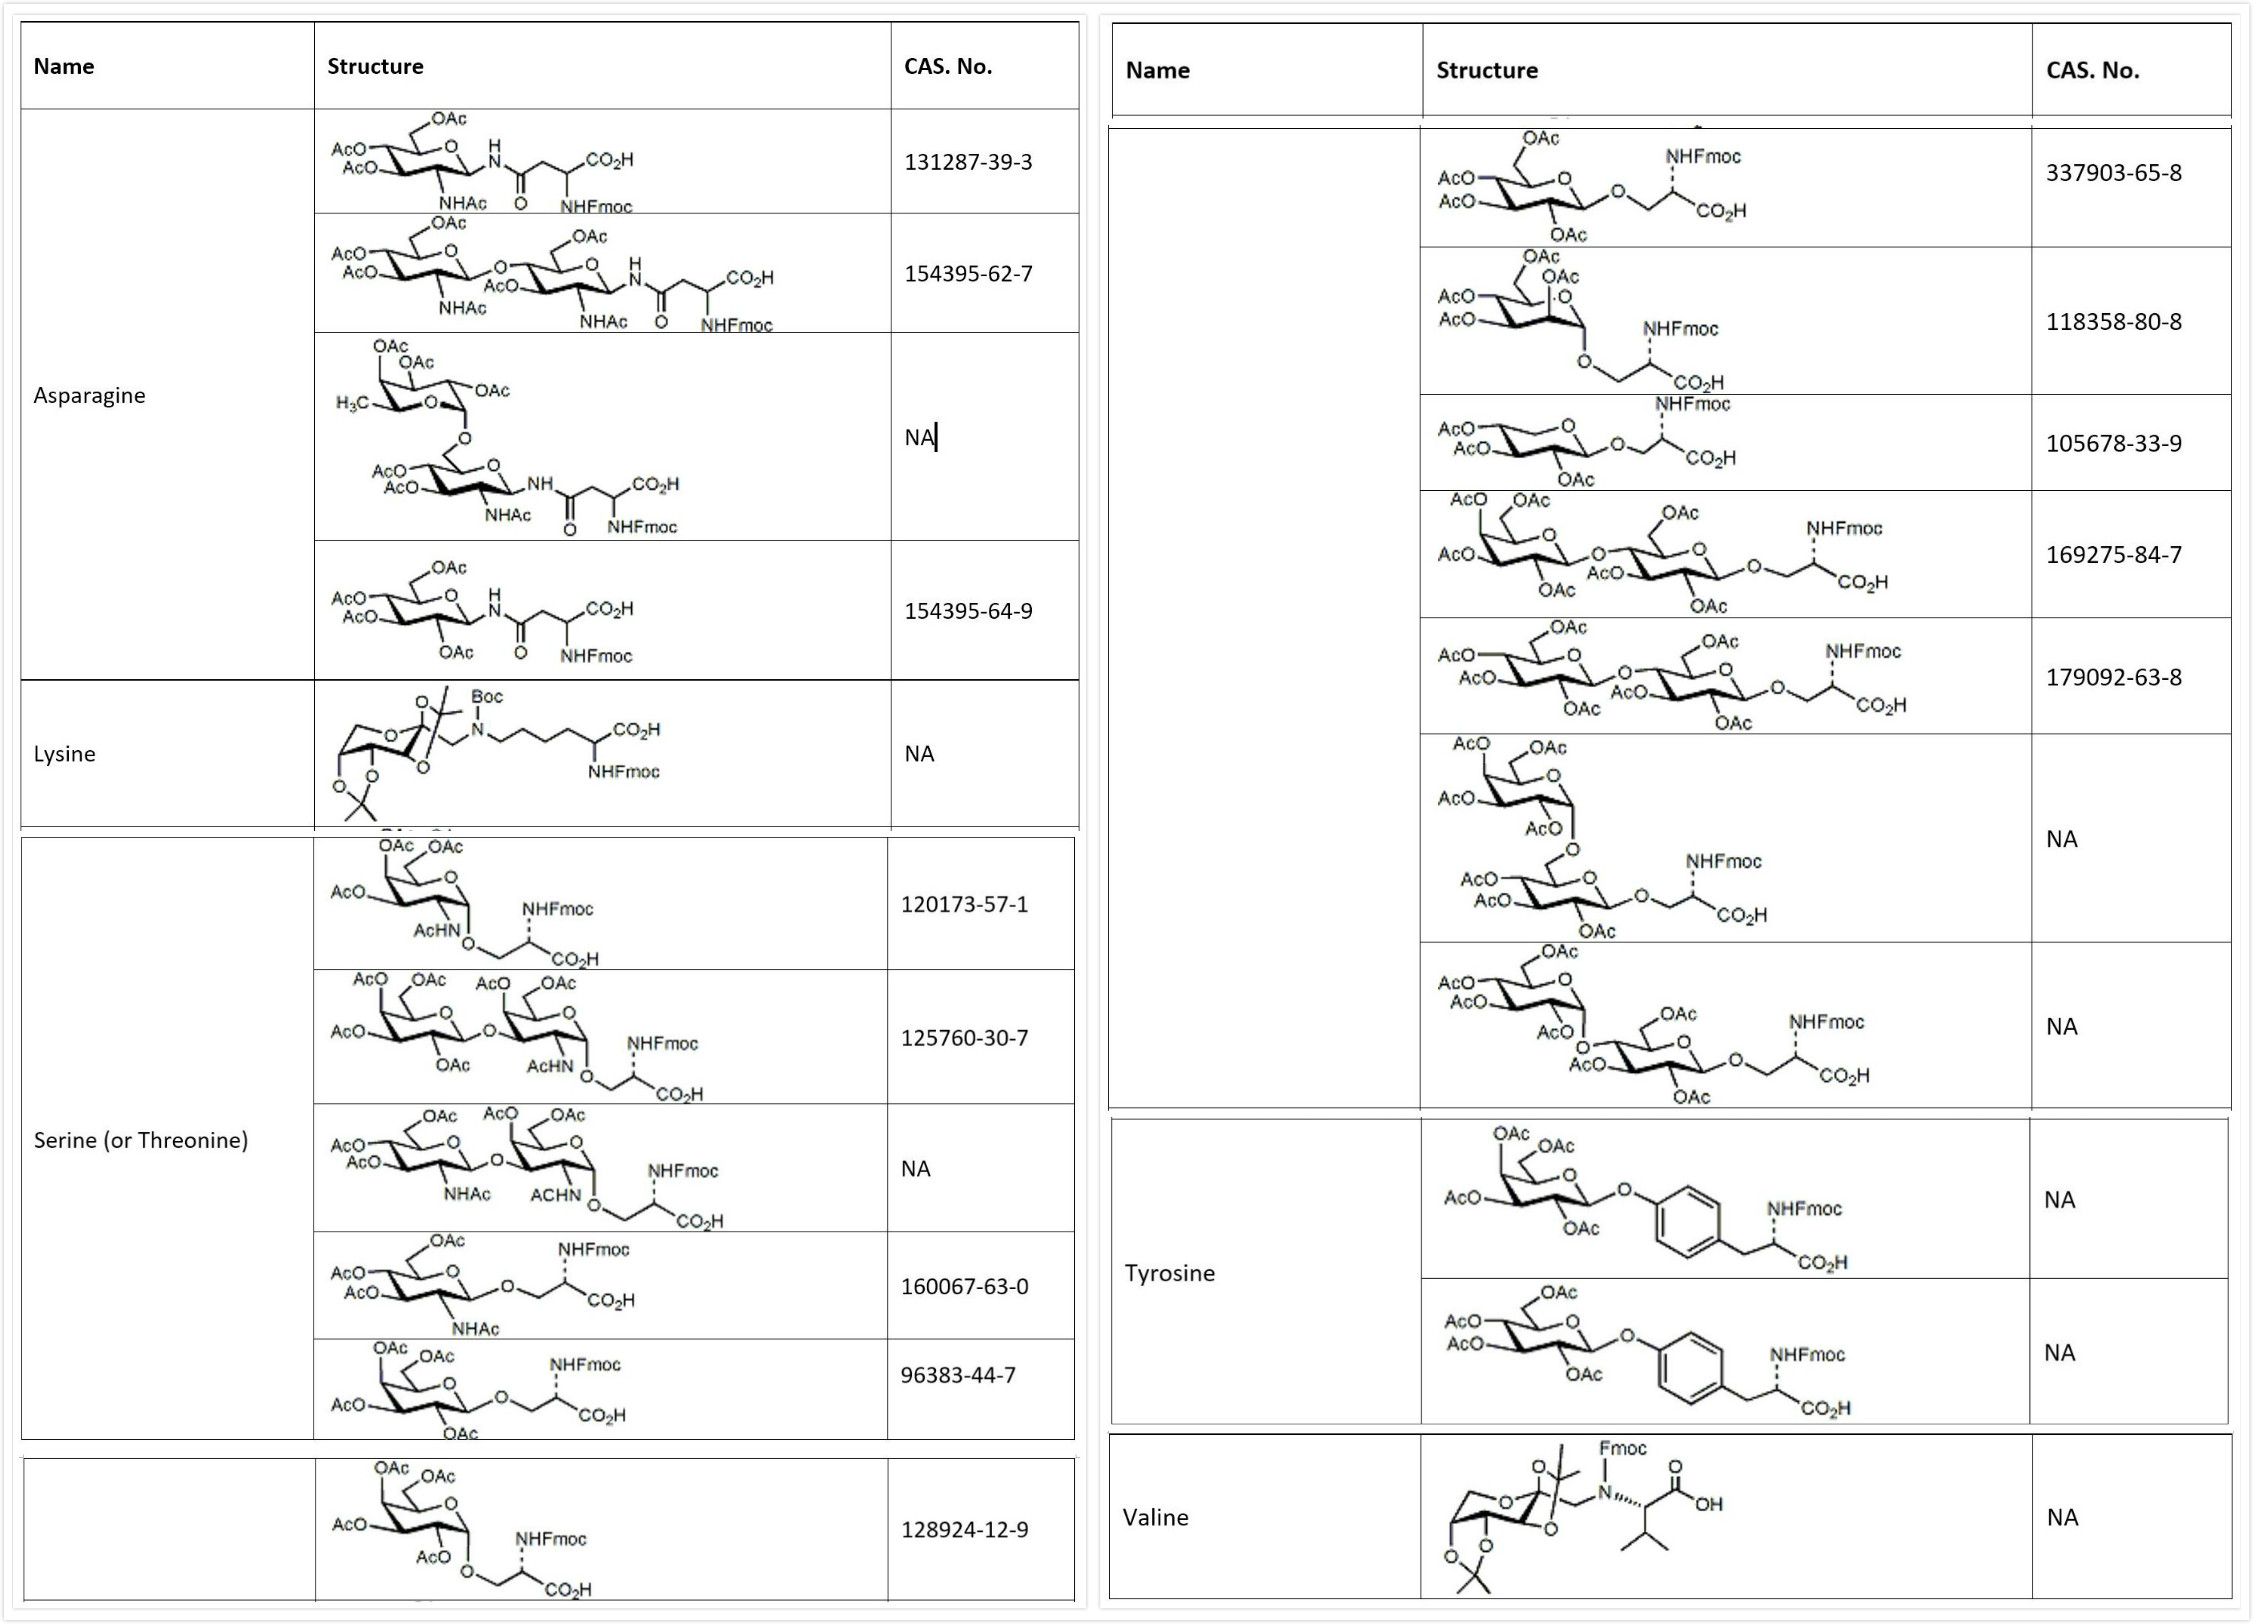 Name Structure CAS. No.
Asparagine
OAc
AcO O H
AcO N CO₂H
NHAc O NHFmoc
131287-39-3
OAc
AcO O OAc
AcO O O H
AcO N CO₂H
NHAc NHAc O NHFmoc
154395-62-7
OAc
OAc
OAc
H₃C O
O
AcO O
AcO NH CO₂H
NHAc O NHFmoc
NA
OAc
AcO O H
AcO N CO₂H
OAc O NHFmoc
154395-64-9
Lysine
O Boc
O N CO₂H
O NHFmoc
O O
NA
Serine (or Threonine)
OAc OAc
O
AcO
AcHN O NHFmoc
CO₂H
120173-57-1
AcO OAc AcO OAc
O O
AcO O NHFmoc
OAc AcHN O
CO₂H
125760-30-7
OAc AcO OAc
AcO O O
AcO O NHFmoc
NHAc ACHN O
CO₂H
NA
OAc NHFmoc
AcO O
AcO O CO₂H
NHAc
160067-63-0
OAc
OAc NHFmoc
O
AcO O CO₂H
OAc
96383-44-7
OAc
OAc
O
AcO
AcO NHFmoc
O
CO₂H
128924-12-9
Name Structure CAS. No.
OAc NHFmoc
AcO O O
AcO CO₂H
OAc
337903-65-8
OAc
OAc
AcO O
AcO NHFmoc
O
CO₂H
118358-80-8
NHFmoc
AcO O
AcO O CO₂H
OAc
105678-33-9
AcO OAc OAc
O NHFmoc
AcO O O
AcO O
OAc CO₂H
OAc
169275-84-7
OAc OAc
AcO O NHFmoc
AcO O O
AcO O
OAc CO₂H
OAc
179092-63-8
AcO OAc
O
AcO
AcO
O NHFmoc
AcO O
AcO O CO₂H
OAc
NA
OAc
AcO O
AcO OAc
AcO NHFmoc
O O
AcO O CO₂H
OAc
NA
Tyrosine
OAc
OAc
O O
AcO NHFmoc
OAc
CO₂H
NA
OAc
AcO O O
AcO NHFmoc
OAc
CO₂H
NA
Valine
Fmoc
O O
O N OH
O
O O
NA